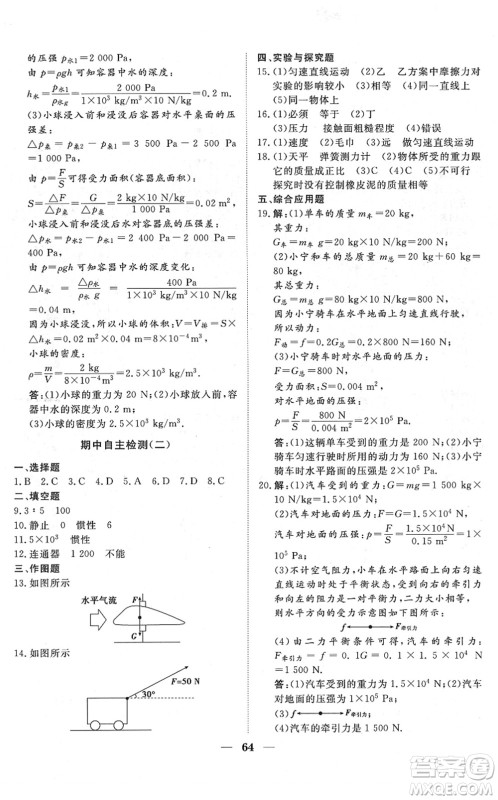 的压强 p水1=2 000 Pa,
由 p=ρgh 可知容器中水的深度:
h水=p水1/ρ水g=2 000 Pa/(1×10³ kg/m³×10 N/kg)=0.2 m
(3)小球浸入前和浸没后容器对水平桌面的压
强差:
△p桌=p桌2-p桌1=3 500 Pa-2 500 Pa=
1 000 Pa
由 p=F/S 可知受力面积(容器底面积):
S=△F/△p桌=G/△p桌=2 kg×10 N/kg/1 000 Pa=0.02 m²,
小球浸入前和浸没后水对容器底的压强差:
△p水=p水2-p水1=2 400 Pa-2 000 Pa=
400 Pa
由 p=ρgh 可知容器中水的深度变化:
△h水=△p水/ρ水g=400 Pa/(1×10³ kg/m³×10 N/kg)
=0.04 m,
因为小球浸没,所以小球的体积:V=V排=S
△h水=0.02 m²×0.04 m=8×10⁻⁴ m³
小球的密度:
ρ=m/V=2 kg/(8×10⁻⁴ m³)=2.5×10³ kg/m³
答:(1)小球的重力为 20 N;(2)小球放入前,容
器中水的深度为 0.2 m;
(3)小球的密度为 2.5×10³ kg/m³。
期中自主检测(二)
一、选择题
二、填空题
9.3∶5 100
10.静止 0 惯性 6
11.5×10³ 惯性
12.连通器 1 200 不能
三、作图题
13.如图所示
水平气流
F
G
14.如图所示
F=50 N
30°
四、实验与探究题
15.(1)匀速直线运动 (2)乙 乙方案中摩擦力对
实验的影响较小 (3)相同 (4)同一直线上
(5)同一物体上
16.(1)必须 等于 (2)丁
(3)压力 接触面粗糙程度 (4)错误
17.(1)速度 (2)毛巾 (3)远 匀速直线运动
18.(1)天平 弹簧测力计 (2)物体所受的重力跟
它的质量成正比 (3)C (4)B (5)不可行
探究时没有控制橡皮泥的质量相同
五、综合应用题
19.解:(1)单车的质量 m车=20 kg,
其重力:
G车=m车 g=20 kg×10 N/kg=200 N
(2)小宁和单车的总质量 m总=20 kg+60 kg=
80 kg,
其总重力:
G总=m总 g=80 kg×10 N/kg=800 N
因为小宁骑车在水平地面上匀速直线行驶,
所以,f=0.04G总=0.04×800 N=32 N
(3)小宁骑车对水平地面的压力:
F=G总=800 N
受力面积 S=0.004 m²,
小宁骑车时对水平地面的压强:
p=F/S=800 N/0.004 m²=2×10⁵ Pa
答:(1)这辆单车受到的重力为 200 N;(2)小宁
骑车匀速行驶时所受的阻力为 32 N;(3)小宁
骑车时对水平地面的压强为 2×10⁵ Pa。
20.解:(1)汽车受到的重力:G=mg=1.5×10³ kg×
10 N/kg=1.5×10⁴ N
(2)汽车对地面的压力:F=G=1.5×10⁴ N
汽车对地面的压强:p=F/S=1.5×10⁴ N/0.1 m²=1.5×
10⁵ Pa
(3)不计空气阻力,小汽车在水平路面上向右匀
速直线行驶时,水平方向受到向右的牵引力
和向左的摩擦力,受力示意图为:
f F牵引力
(4)由二力平衡条件可得,汽车的牵引力:
F牵引力=f=0.1 G=0.1×1.5×10⁴ N=1 500 N
答:(1)汽车受到的重力为 1.5×10⁴ N;
(2)汽车对地面的压强是 1.5×10⁵ Pa;
(3) f F牵引力
(4)汽车的牵引力是 1 500 N。
64